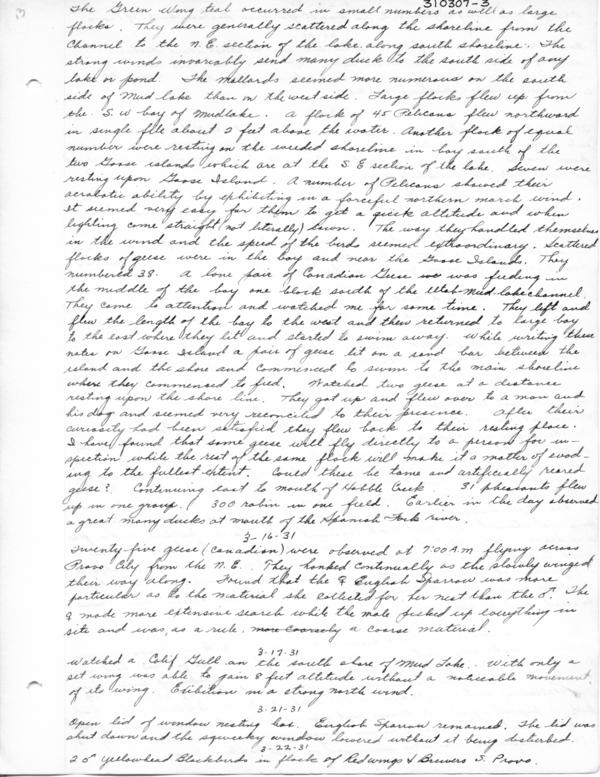 310307-3
The Green wing teal occurred in small numbers as well as large
flocks. They were generally scattered along the shoreline from the
Channel to the N.E. section of the lake, along south shoreline. The
strong winds invariably send many duck to the south side of any
lake or pond. The mallards seemed more numerous on the south
side of Mud lake than on the west side. Large flocks flew up from
the S.W bay of Mudlake. A flock of 45 Pelicans flew northward
in single file about 2 feet above the water. Another flock of equal
number were resting on the weeded shoreline in bay south of the
two Goose islands which are at the S E section of the lake. Seven were
resting upon Goose Island. A number of Pelicans showed their
acrobatic ability by exhibiting in a forceful northern march wind.
It seemed very easy for them to get a quick altitude and when
lighting come straight (not literally) down. The way they handled themselves
in the wind and the speed of the birds seemed extraordinary. Scattered
flocks of geese were in the bay and near the Goose Islands. They
numbered 38. A lone pair of Canadian Geese was feeding in
the middle of the bay one block south of the Utah-Mud-lake channel.
They came to attention and watched me for some time. They left and
flew the length of the bay to the west and then returned to large bay
to the east where they lit and started to swim away. While writing these
notes on Goose Island a pair of geese lit on a sand bar between the
island and the shore and commenced to swim to the main shoreline
where they commenced to feed. Watched two geese at a distance
resting upon the shore line. They got up and flew over to a man and
his dog and seemed very reconciled to their presence. After their
curiosity had been satisfied they flew back to their resting place.
I have found that some geese will fly directly to a person for in-
spection while the rest of the same flock will make it a matter of evad-
ing to the fullest extent. Could these be tame and artificially reared
geese? Continuing east to mouth of Hobble Creek. 31 pheasants flew
up in one group. 300 robin in one field. Earlier in the day observed
a great many ducks at mouth of the Spanish Fork river.
3-16-31
Twenty-five geese (Canadian) were observed at 7:00 A.M flying across
Provo City from the N.E. They honked continually as they slowly winged
their way along. Found that the ♀ English Sparrow was more
particular as to the material she collected for her nest than the ♂. The
♀ made more extensive search while the male picked up everything in
site and was, as a rule, a coarse material.
3-17-31
Watched a Calif Gull on the south shore of Mud Lake. With only a
set wing was able to gain 8 feet altitude without a noticeable movement
of its wing. Exibition in a strong north wind.
3-21-31
Open lid of window nesting box. English Sparrow remained. The lid was
shut down and the squeeky window lowered without it being disturbed.
3-22-31
2 ♂ Yellowhead Blackbirds in flock of Redwings & Brewers S. Provo.